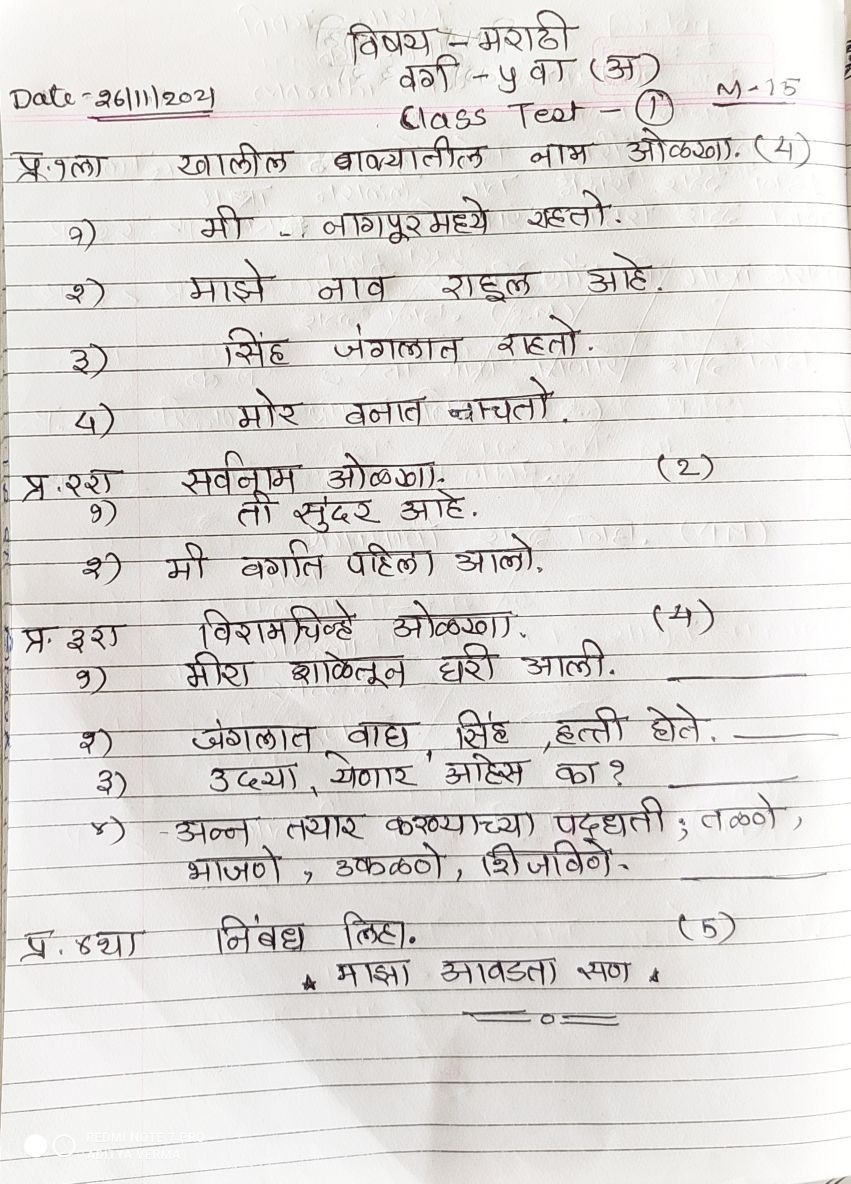 विषय - मराठी
वर्ग - ५ वा (अ)
Date - 26/11/2021
M - 15
Class Test - ①
प्र. १ला खालील वाक्यातील नाम ओळखा. (4)
१) मी नागपूरमध्ये राहतो.
२) माझे नाव राहूल आहे.
३) सिंह जंगलात राहतो.
4) मोर वनात नाचतो.
प्र. २रा सर्वनाम ओळखा. (2)
१) ती सुंदर आहे.
२) मी वर्गात पहिला आलो.
प्र. ३रा विरामचिन्हे ओळखा. (4)
१) मीरा शाळेतून घरी आली.
२) जंगलात वाघ, सिंह, हत्ती होते.
३) उदया येणार आहेस का?
४) अन्न तयार करण्याच्या पद्धती; तळणे,
भाजणे, उकळणे, शिजविणे.
प्र. ४था निबंध लिहा. (5)
★ माझा आवडता सण ★
REDMI NOTE 7 PRO
ADITYA VERMA